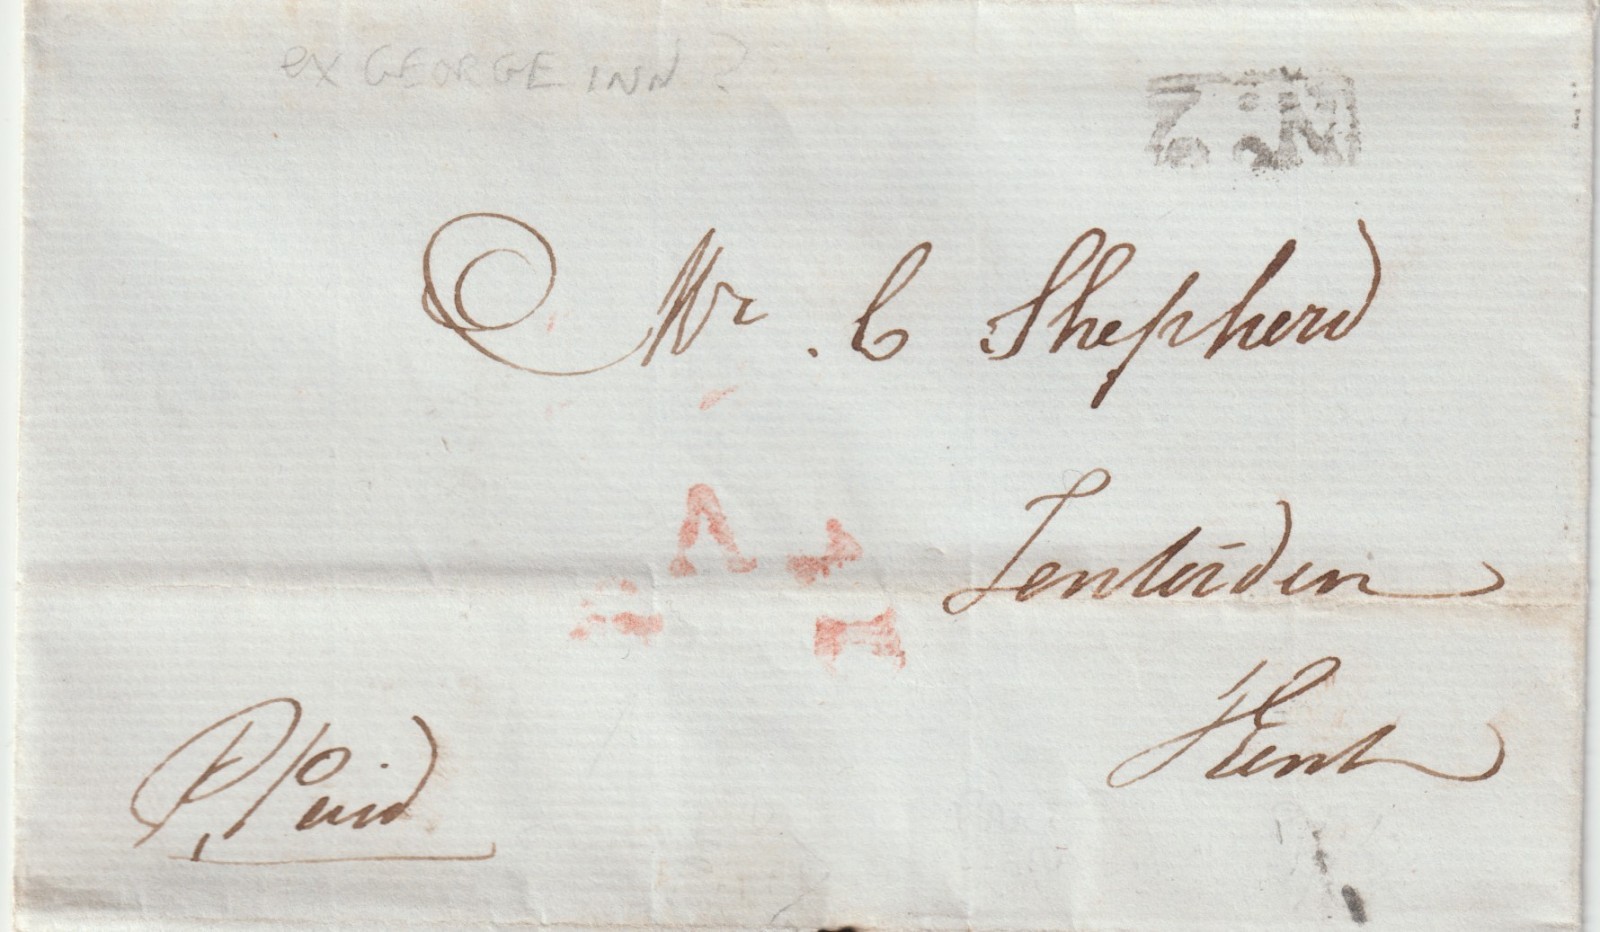 ex GEORGE INN?
Mr. C Shepherd
Tenterden
Kent
P. Paid